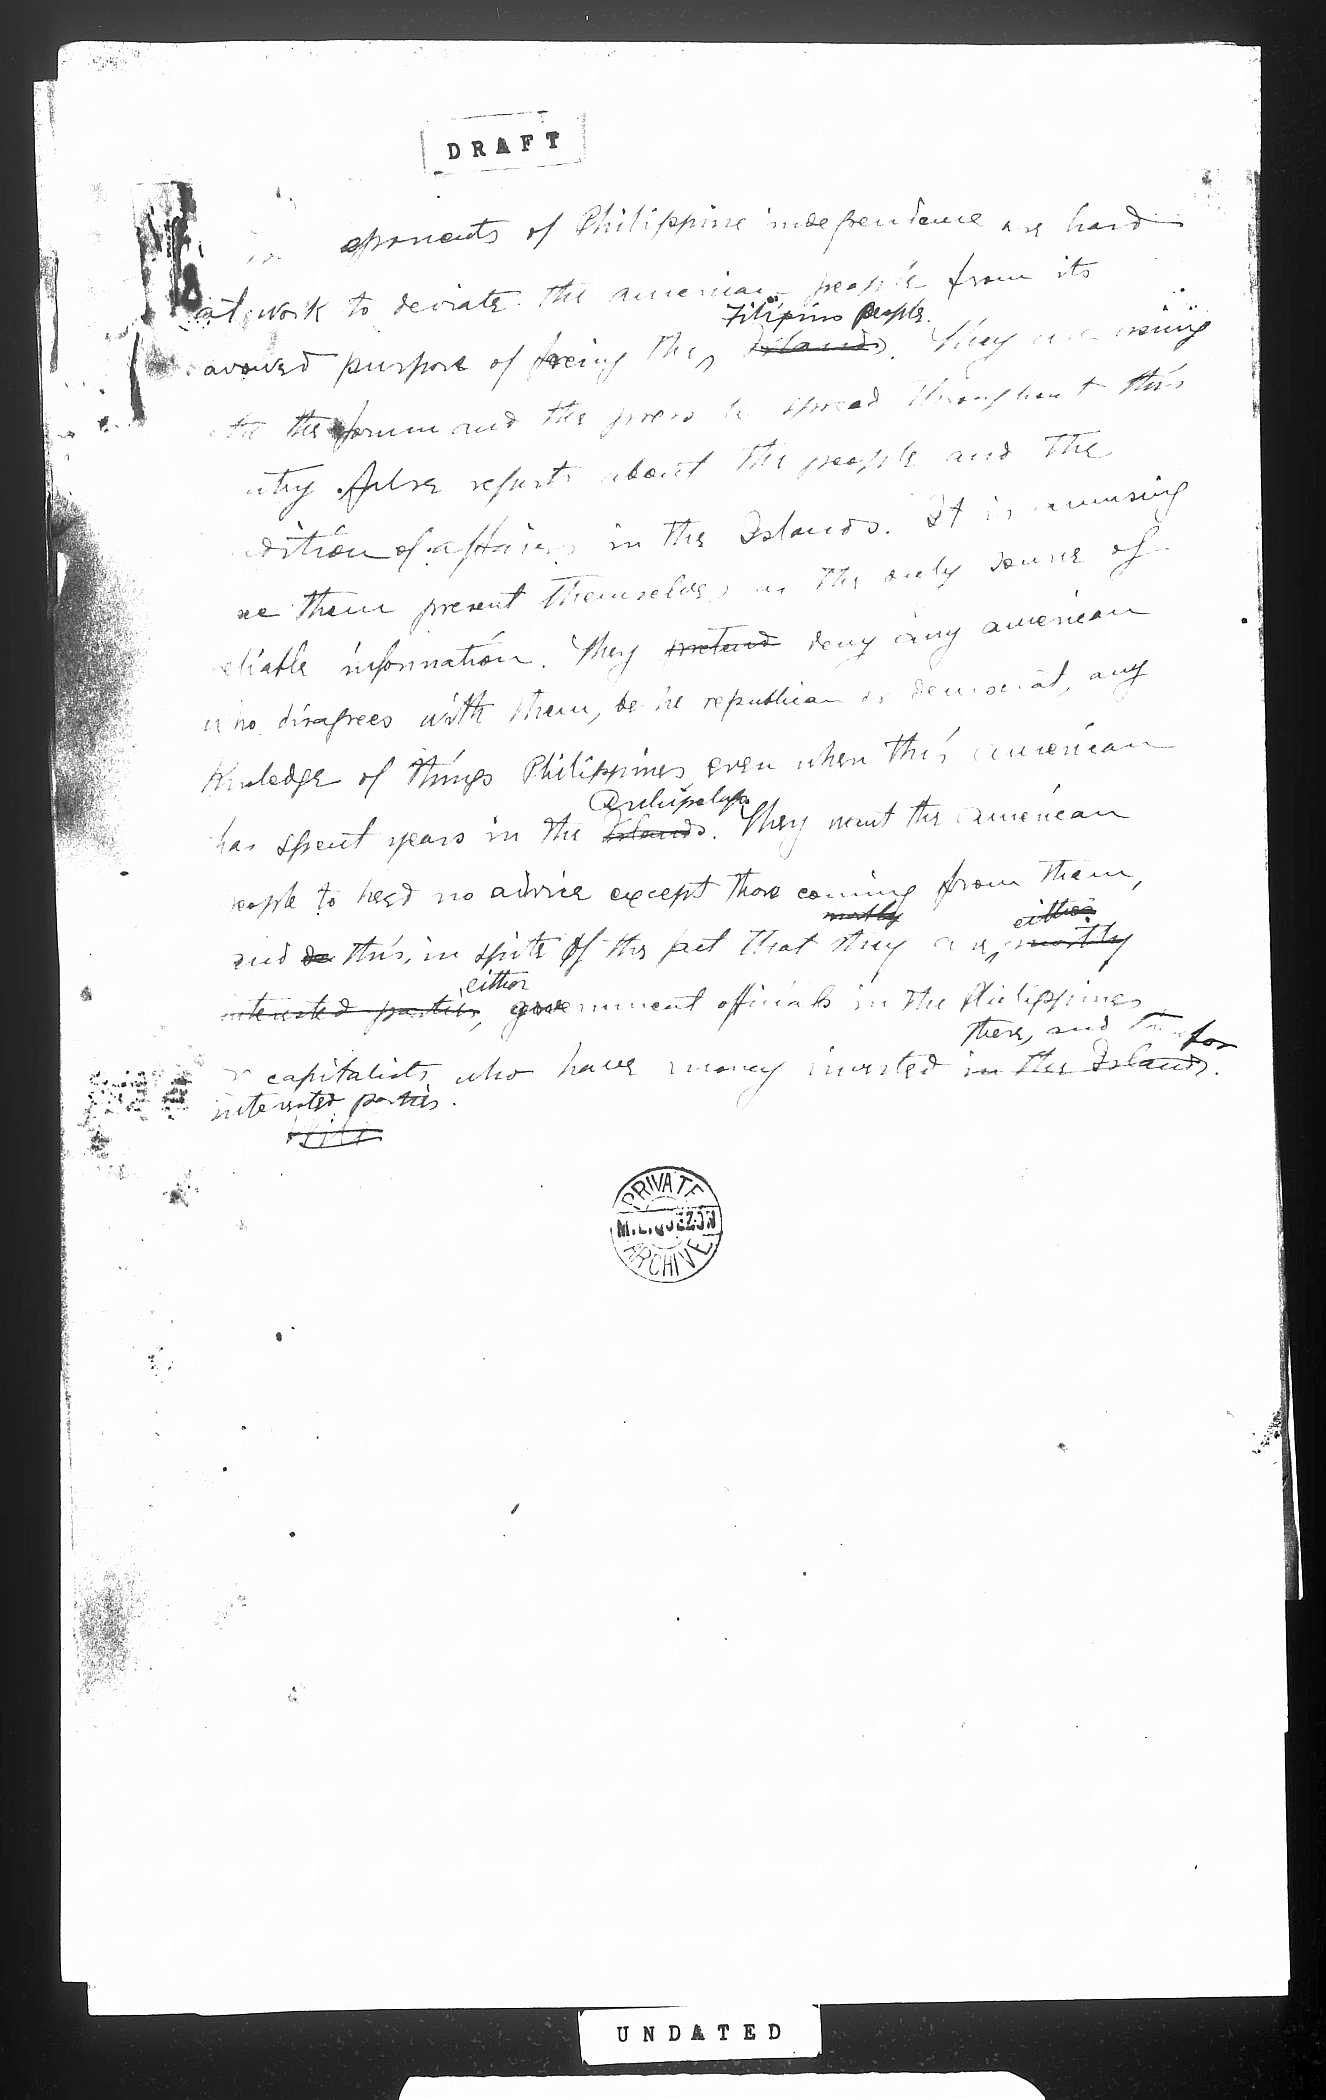 DRAFT
oponents of Philippine independence are hard
at work to deviate the american people from its
Filipino people.
avowed purpose of freeing the Islands. They are using
the forum and the press to spread throughout this
utry false reports about the people and the
dition of affairs in the Islands. It is amusing
see them present themselves as the only source of
eliable information. They pretend deny any american
who disagrees with them, be he republican or democrat, any
knowledge of things Philippines even when this american
archipelago
has spent years in the Islands. They want the american
people to heed no advice except those coming from them,
mostly either
and do this, in spite of the fact that they are, mostly
either
interested parties, government officials in the Philippines
there, and therefor
or capitalists who have money invested in the Islands.
interested parties.
PRIVATE
M.L.QUEZON
ARCHIVE
UNDATED